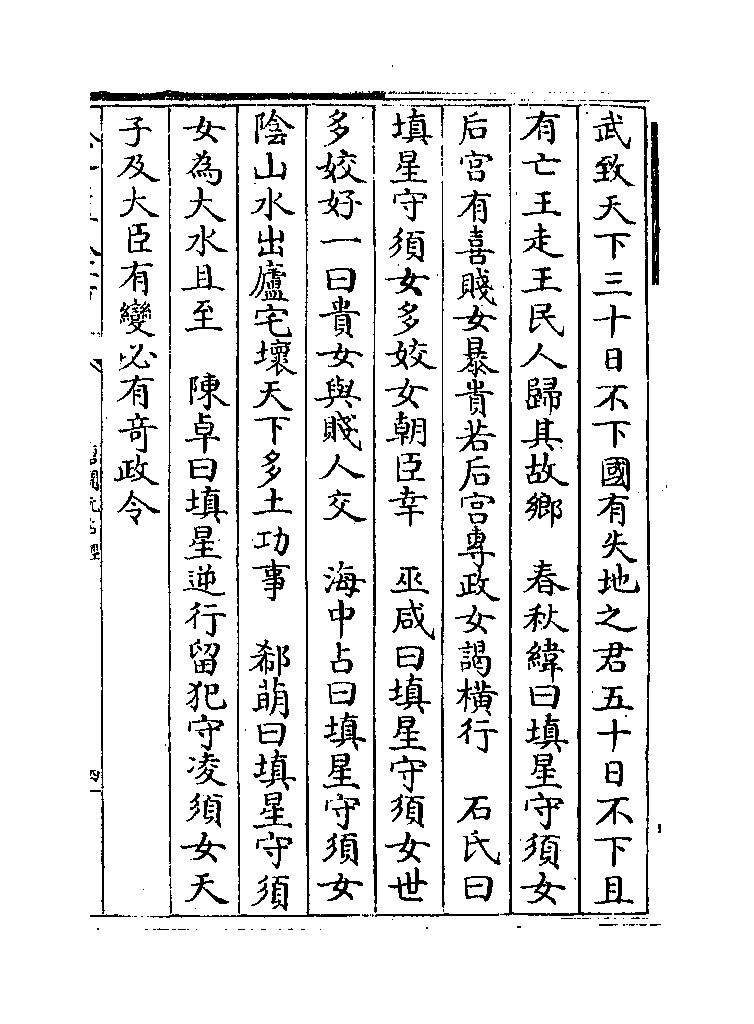 武致天下三十日不下國有失地之君五十日不下且
有亡王走王民人歸其故鄉　春秋緯曰填星守須女
后宫有喜賤女暴貴若后宫專政女謁横行　石氏曰
填星守須女多姣女朝臣幸　巫咸曰填星守須女世
多姣好一曰貴女與賤人交　海中占曰填星守須女
陰山水出廬宅壞天下多土功事　郗萌曰填星守須
女為大水且至　陳卓曰填星逆行留犯守凌須女天
子及大臣有變必有竒政令
唐開元占經